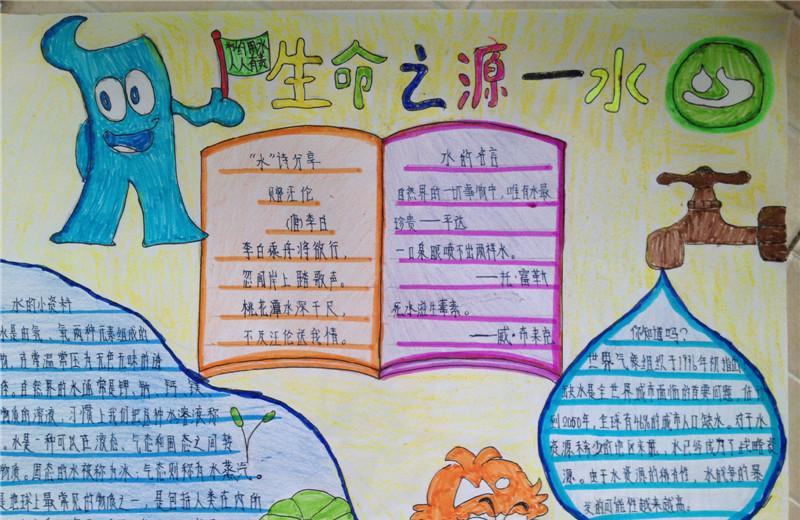 节约用水
人人有责
生命之源—水
"水"诗分享
赠汪伦
(唐)李白
李白乘舟将欲行,
忽闻岸上踏歌声。
桃花潭水深千尺,
不及汪伦送我情。
水的名言
自然界的一切事物中,唯有水最
珍贵——平达
一口泉眼喷不出两样水。
——托·富勒
死水滋生毒素。
——威·布莱克
水的小资料
水是由氢、氧两种元素组成的
在常温常压为无色无味的透
自然界的水通常是钾、钠、钙、镁
物质的溶液 习惯上我们把各种水溶液称
水是一种可以在液态、气态和固态之间转
物质。固态的水被称为冰;气态则称为水蒸汽。
是地球上最常见的物质之一,是包括人类在内所
你知道吗?
世界气象组织于1996年初指出
缺水是全世界城市面临的首要问题,估计
到2050年,全球有46%的城市人口缺水。对于水
资源稀少的地区来说,水已经成为了战略资
源。由于水资源的稀有性,水战争的暴
发的可能性越来越高。